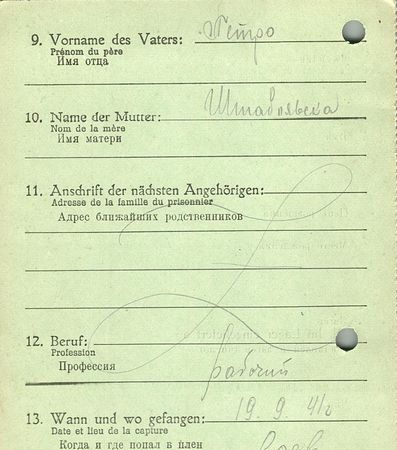 9. Vorname des Vaters: Петро
Prénom du père
Имя отца
10. Name der Mutter:
Nom de la mère
Имя матери
11. Anschrift der nächsten Angehörigen:
Adresse de la famille du prisonnier
Адрес ближайших родственников
12. Beruf:
Profession
Профессия рабочий
13. Wann und wo gefangen: 19. 9. 41
Date et lieu de la capture
Когда и где попал в плен